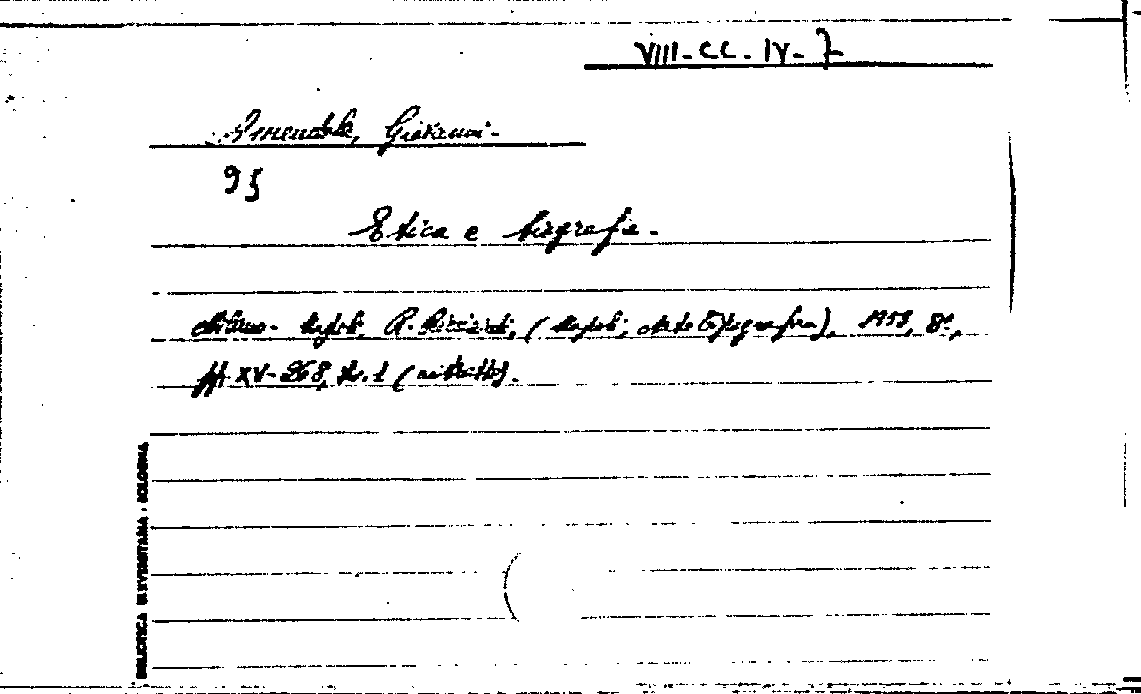 VIII-CC-IV-7
Amendola, Giovanni.
95
Etica e biografia.
Milano-Napoli, R. Ricciardi, (Napoli, Arte Tipografica), 1953, 8°,
pp. XV-268, tv. 1 (ritratto).
BIBLIOTECA UNIVERSITARIA - BOLOGNA